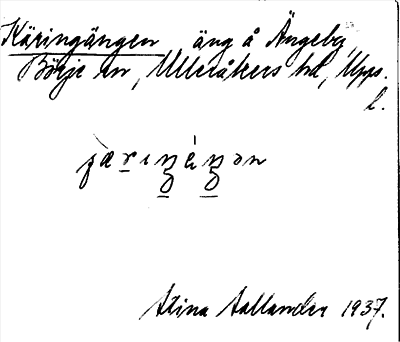 Käringängen äng å Ängeby,
Börje sn, Ulleråkers hd, Upps.
l.
Stina Hallander 1937.